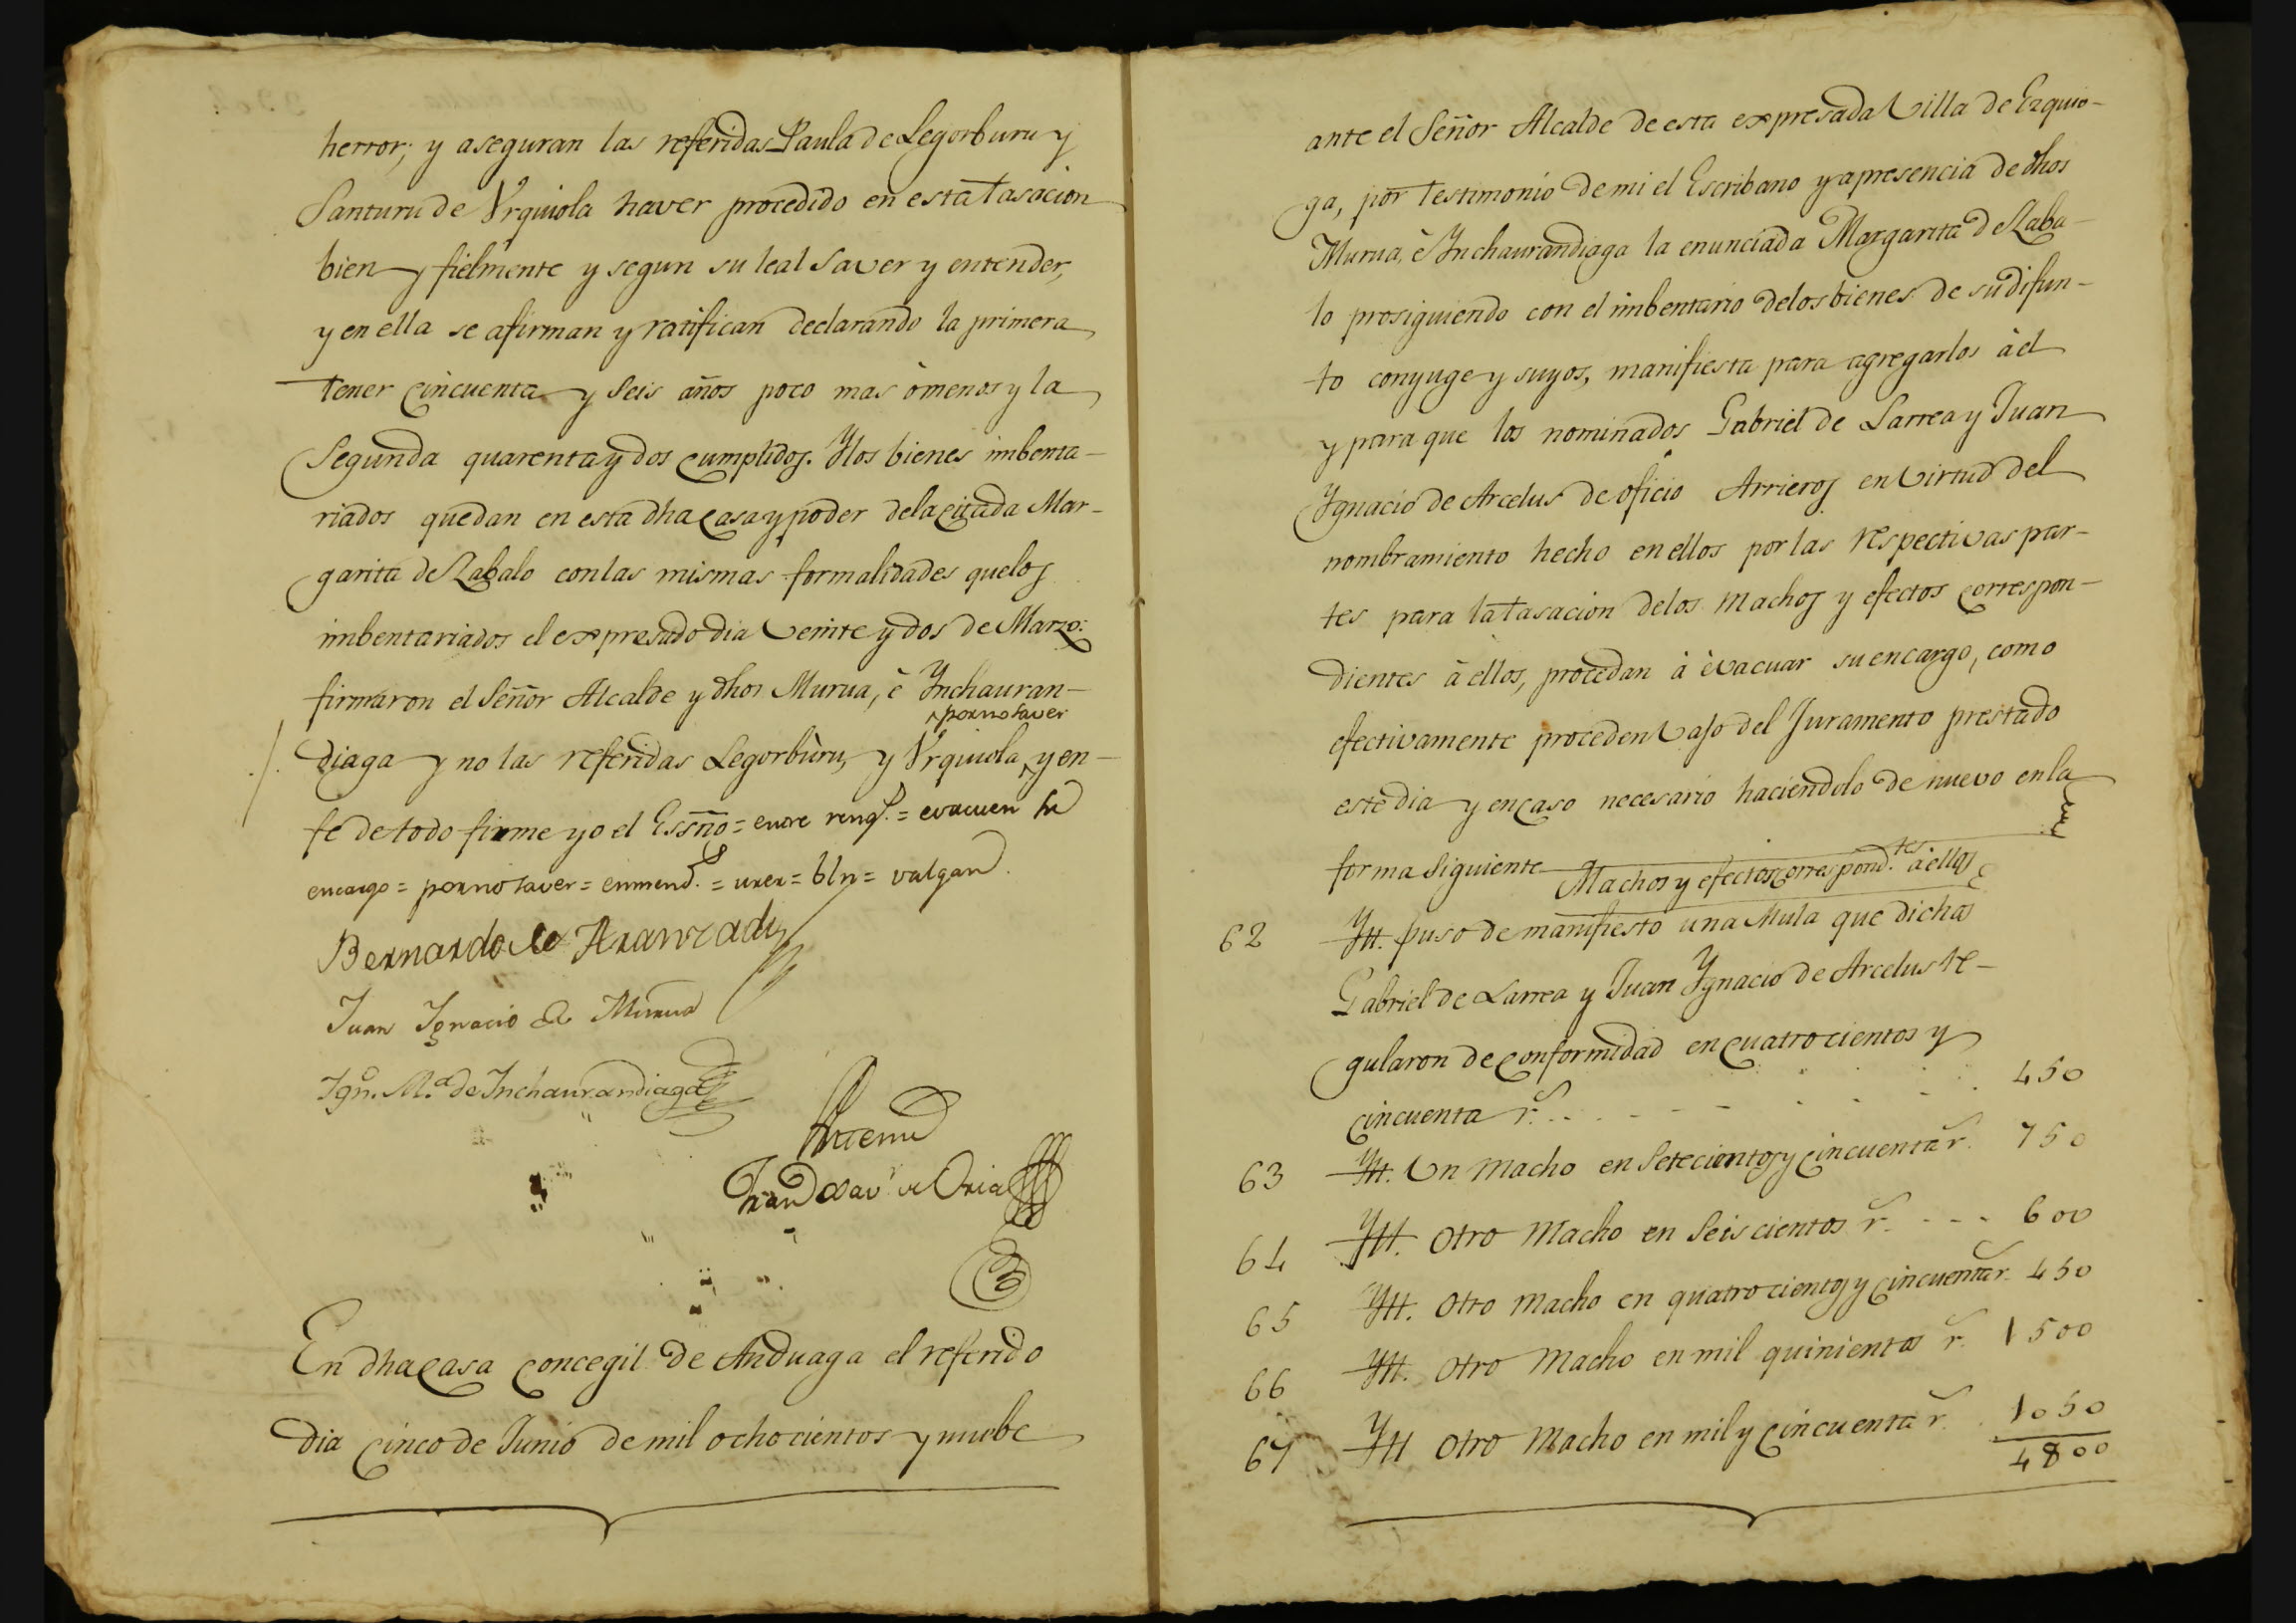 herror; y aseguran las referidas Paula de Legorburu y
Santuru de Vrquiola haver procedido en esta tasacion
bien y fielmente y segun su leal saver y entender,
y en ella se afirman y ratifican declarando la primera
tener cincuenta y seis años poco mas ò menos y la
segunda quarenta y dos cumplidos. Y los bienes imbenta-
riados quedan en esta dha casa y poder de la citada Mar-
garita de Zabalo con las mismas formalidades que los
imbentariados el expresado dia veinte y dos de Marzo:
firmaron el Señor Alcalde y dhos Murua, è Ynchauran-
por no saver
diaga y no las referidas Legorburu, y Vrquiola, y en
fe de todo firme yo el Essño = entre rengs. = evacuen su
encargo = por no saver = enmend.s = = = valgan.
Bernardo de Aranzadi
Juan Ignacio de Murua
Ign.o M.a de Inchaurandiaga
Ante mi
Fran.co Xav.r de Oria
En dha casa concegil de Anduaga el referido
dia cinco de Junio de mil ochocientos y nuebe
ante el Señor Alcalde de esta expresada Villa de Ezquio-
ga, por testimonio de mi el Escribano y a presencia de dhos
Murua, è Ynchaurandiaga la enunciada Margarita de Zaba-
lo prosiguiendo con el imbentario de los bienes de su difun-
to conyuge y suyos, manifiesta para agregarlos à él
y para que los nominados Gabriel de Larrea y Juan
Ygnacio de Arcelus de oficio Arrieros en virtud del
nombramiento hecho en ellos por las respectivas par-
tes para la tasacion de los machos y efectos correspon-
dientes à ellos, procedan à evacuar su encargo, como
efectivamente proceden vajo del Juramento prestado
este dia y en caso necesario haciendolo de nuevo en la
forma siguiente Machos y efectos correspond.tes à ellos
62 Ytt. puso de manifiesto una Mula que dichos
Gabriel de Larrea y Juan Ygnacio de Arcelus re-
gularon de conformidad en cuatrocientos y
cincuenta r.s . . - - - . . . . 450
63 Ytt. Un Macho en setecientos y cincuenta r.s 750
64 Ytt. Otro Macho en seiscientos r.s - - - 600
65 Ytt. Otro Macho en quatrocientos y cincuenta r.s 450
66 Ytt. Otro Macho en mil quinientos r.s 1500
67 Ytt Otro Macho en mil y cincuenta r.s 1050
4800